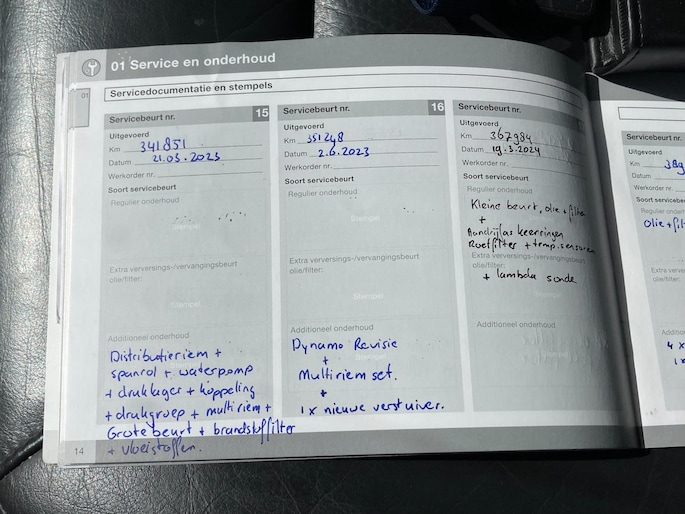 01 Service en onderhoud
01
Servicedocumentatie en stempels
Servicebeurt nr. 15
Uitgevoerd
Km 341851
Datum 21.03.2023
Werkorder nr.
Soort servicebeurt
Regulier onderhoud
Stempel
Extra verversings-/vervangingsbeurt
olie/filter:
Stempel
Additioneel onderhoud
Distributieriem +
spanrol + waterpomp
+ druklager + koppeling
+ drukgroep + multiriem +
Grote beurt + brandstoffilter
+ vloeistoffen.
14
Servicebeurt nr. 16
Uitgevoerd
Km 351248
Datum 2.6.2023
Werkorder nr.
Soort servicebeurt
Regulier onderhoud
Stempel
Extra verversings-/vervangingsbeurt
olie/filter:
Stempel
Additioneel onderhoud
Dynamo Revisie
+
Multiriem set.
+
1x nieuwe verstuiver.
Servicebeurt nr.
Uitgevoerd
Km 367984
Datum 19.3.2024
Werkorder nr.
Soort servicebeurt
Regulier onderhoud
Kleine beurt, olie + filter
+
Aandrijfas keerringen
Roetfilter + temp. sensoren
Extra verversings-/vervangingsbeurt
olie/filter:
+ lambda sonde
Additioneel onderhoud
Servicebeurt nr.
Uitgevoerd
Km
Datum
Werkorder nr.
Soort servicebeurt
Regulier
Extra verv
olie/filter:
Additioneel
4 x
1 x